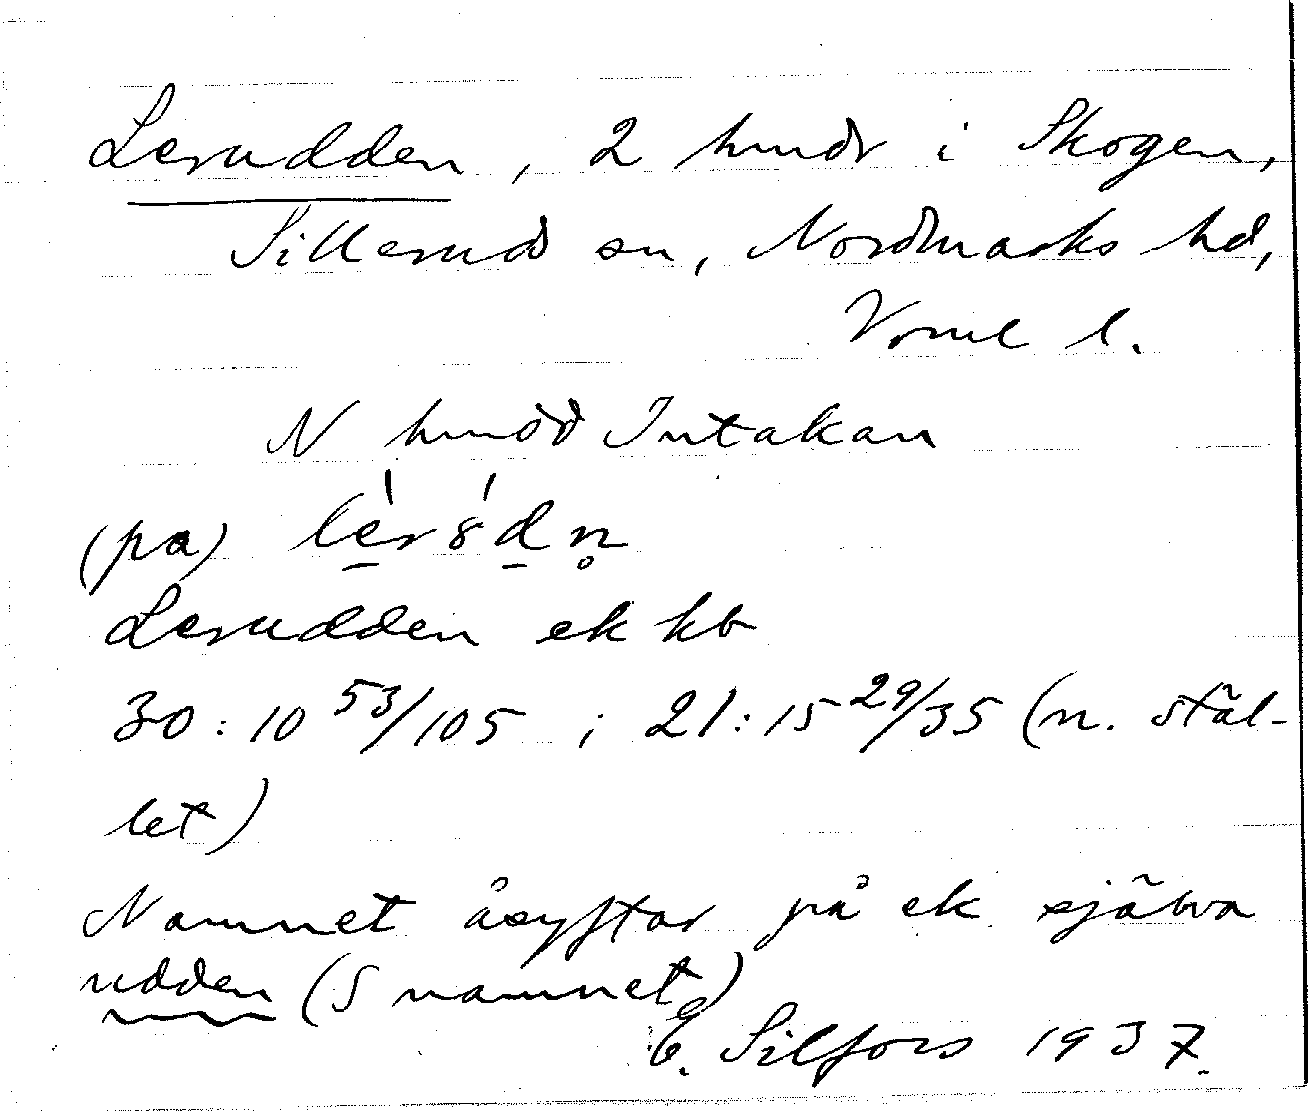 Lerudden, 2 hmdr i Skogen,
Sillerud sn, Nordmarks hd,
Vrml l.
N hmdd Intakan
(pa) lèrśdn̥
Lerudden ek kb
30:10 53/105 ; 21:15 29/35 (n. stäl-
let)
Namnet åsyftar på ek själva
udden (S namnet)
E. Silfors 1937.